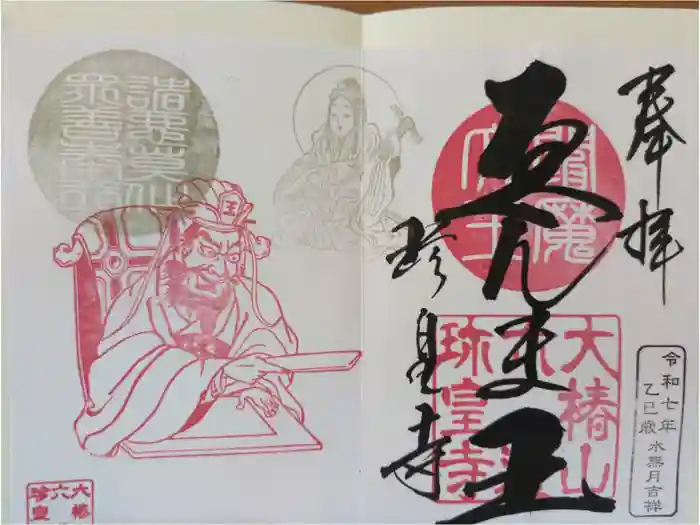 奉拝
閻魔
ゑんま王
大椿山
六道
珍皇寺
珍皇寺
令和七年
乙巳歳 水無月吉祥
諸悪莫作
衆善奉行
王
大椿
六
珍皇